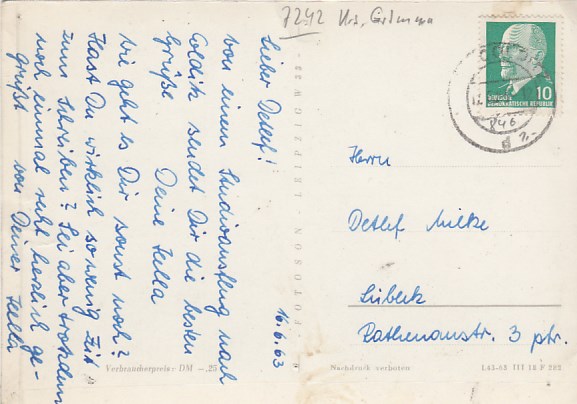 7242 Krs. Grimma
Lieber Detlef!
Von einem Studienausflug nach
Colditz sendet Dir die besten
Grüße Deine Julla
Wie geht es Dir sonst noch?
Hast Du wirklich so wenig Zeit
zum Schreiben? Sei aber trotzdem
noch einmal recht herzlich ge-
grüßt von Deiner Julla
16.6.63
10
DEUTSCHE
DEMOKRATISCHE REPUBLIK
Herrn
Detlef Milke
Lübeck
Rathenaustr. 3 ptr.
Verbraucherpreis: DM –,25
Nachdruck verboten